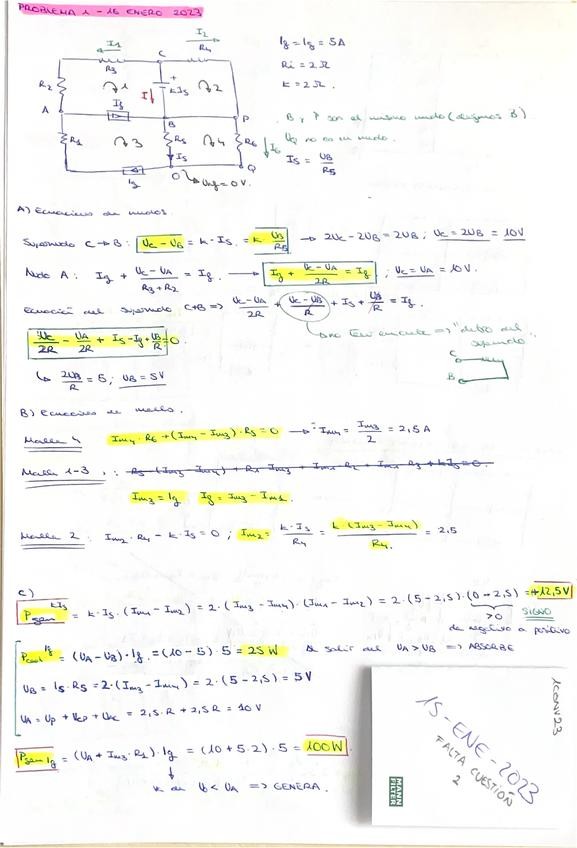 PROBLEMA 1 - 16 ENERO 2023
I1
I2
R3
C
R4
Ig = Ig = 5A
Ri = 2Ω
K = 2Ω.
R2
1
I
+
kIs
2
A
Ig
B
P
B y P son el mismo nudo (digamos B).
UQ no es un nudo.
Is = UB / R5
R1
3
R5
4
R6
I6
Is
Ig
O
Q
Uref = 0V.
A) Ecuaciones de nudos.
Supernudo C → B: UC - UB = k · Is = k UB / R5 → 2UC - 2UB = 2UB ; UC = 2UB = 10V
Nudo A: Ig + UC - UA / R3 + R2 = Ig. → Ig + UC - UA / 2R = Ig ; UC = UA = 10V.
Ecuación del supernudo C+B => UC - UA / 2R + UC - UB / R + Is + UB / R = Ig.
no tener en cuenta => "dentro del supernudo"
UC / 2R - UA / 2R + Is - Ig + UB / R = 0
C
B
2UB / R = 5 ; UB = 5V
B) Ecuaciones de mallas.
Malla 4 Im4 · R6 + (Im4 - Im3) · R5 = 0 → Im4 = Im3 / 2 = 2,5 A
Malla 1-3 : R5 (Im3 - Im4) + R1 Im3 + Im1 R2 + Im1 R3 + kIs = 0.
Im3 = Ig Ig = Im3 - Im1.
Malla 2 : Im2 · R4 - k · Is = 0 ; Im2 = k · Is / R4 = k · (Im3 - Im4) / R4. = 2,5
C)
Pgen kIs = k · Is · (Im1 - Im2) = 2 · (Im3 - Im4) · (Im1 - Im2) = 2 · (5 - 2,5) · (0 - 2,5) = +12,5V
>0
SIGNO
de negativo a positivo
Ig = (UA - UB) · Ig = (10 - 5) · 5 = 25 W
UA > UB => ABSORBE
UB = Is · R5 = 2 · (Im3 - Im4) = 2 · (5 - 2,5) = 5V
UA = Up + Ucp + = 2,5 · R + 2,5 R = 10V
Pgen Ig = (UA + Im3 · R1) · Ig = (10 + 5 · 2) · 5 = 100W
< UA => GENERA.
1CONV23
15-ENE-2023
FALTA CUESTIÓN
2
MANN
FILTER